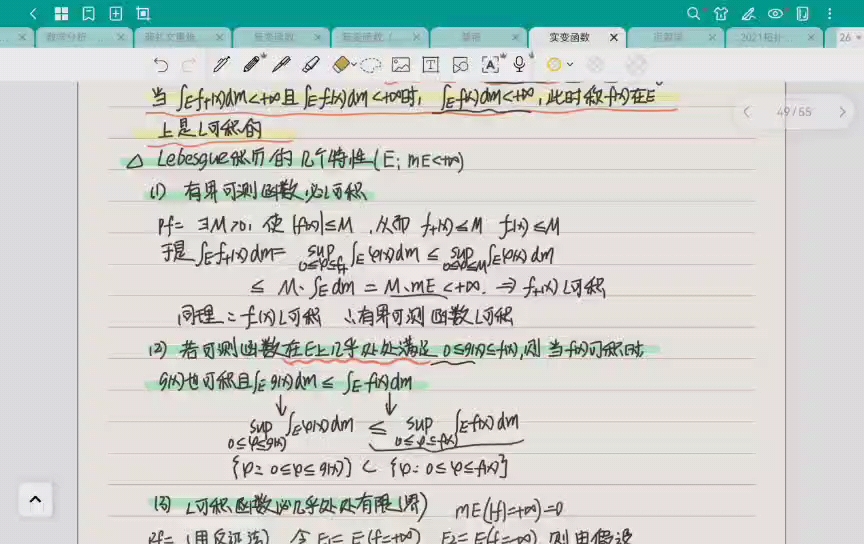 实变函数
2021
26
49/55
当 ∫_E f₊(x)dm<+∞ 且 ∫_E f₋(x)dm<+∞时, ∫_E f(x)dm<+∞, 此时称 f(x)在E
上是L可积的
△ Lebesgue积分的几个特性(E; mE<+∞)
(1) 有界可测函数必L可积
Pf= ∃M>0, 使 |f(x)|≤M, 从而 f₊(x)≤M f₋(x)≤M
于是∫_E f₊(x)dm= sup_{0≤φ≤f₊} ∫_E φ(x)dm ≤ sup_{0≤φ≤M} ∫_E φ(x)dm
≤ M·∫_E dm = M·mE<+∞. ⇒ f₊(x)L可积
同理: f₋(x)L可积 ∴有界可测函数L可积
(2) 若可测函数在E上几乎处处满足 0≤g(x)≤f(x), 则当f(x)可积时
g(x)也可积且∫_E g(x)dm ≤ ∫_E f(x)dm
↓ ↓
sup_{0≤φ≤g(x)} ∫_E φ(x)dm ≤ sup_{0≤φ≤f(x)} ∫_E f(x)dm
{φ: 0≤φ≤g(x)} ⊂ {φ: 0≤φ≤f(x)}
(3) L可积函数必几乎处处有限(界) mE(|f|=+∞)=0
Pf= (用反证法) 令 E₁= E(f=+∞) E₂= E(f=-∞) 则由假设